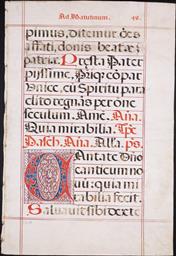 Ad Matutinum. 49.
pimus, ditemur des
affati, donis beatæ
patriæ. Præsta Pater
piissime, Patriq; cōpar
Unice, cū Spiritu para
clito regnās per ōne
sæculum. Amē. Aña.
Quia mirabilia. Tpe
Pasch. Aña. Alla. ps.
Cantate Dño
canticum no
vū: quia mi
rabilia fecit
Salvavit sibi dexte